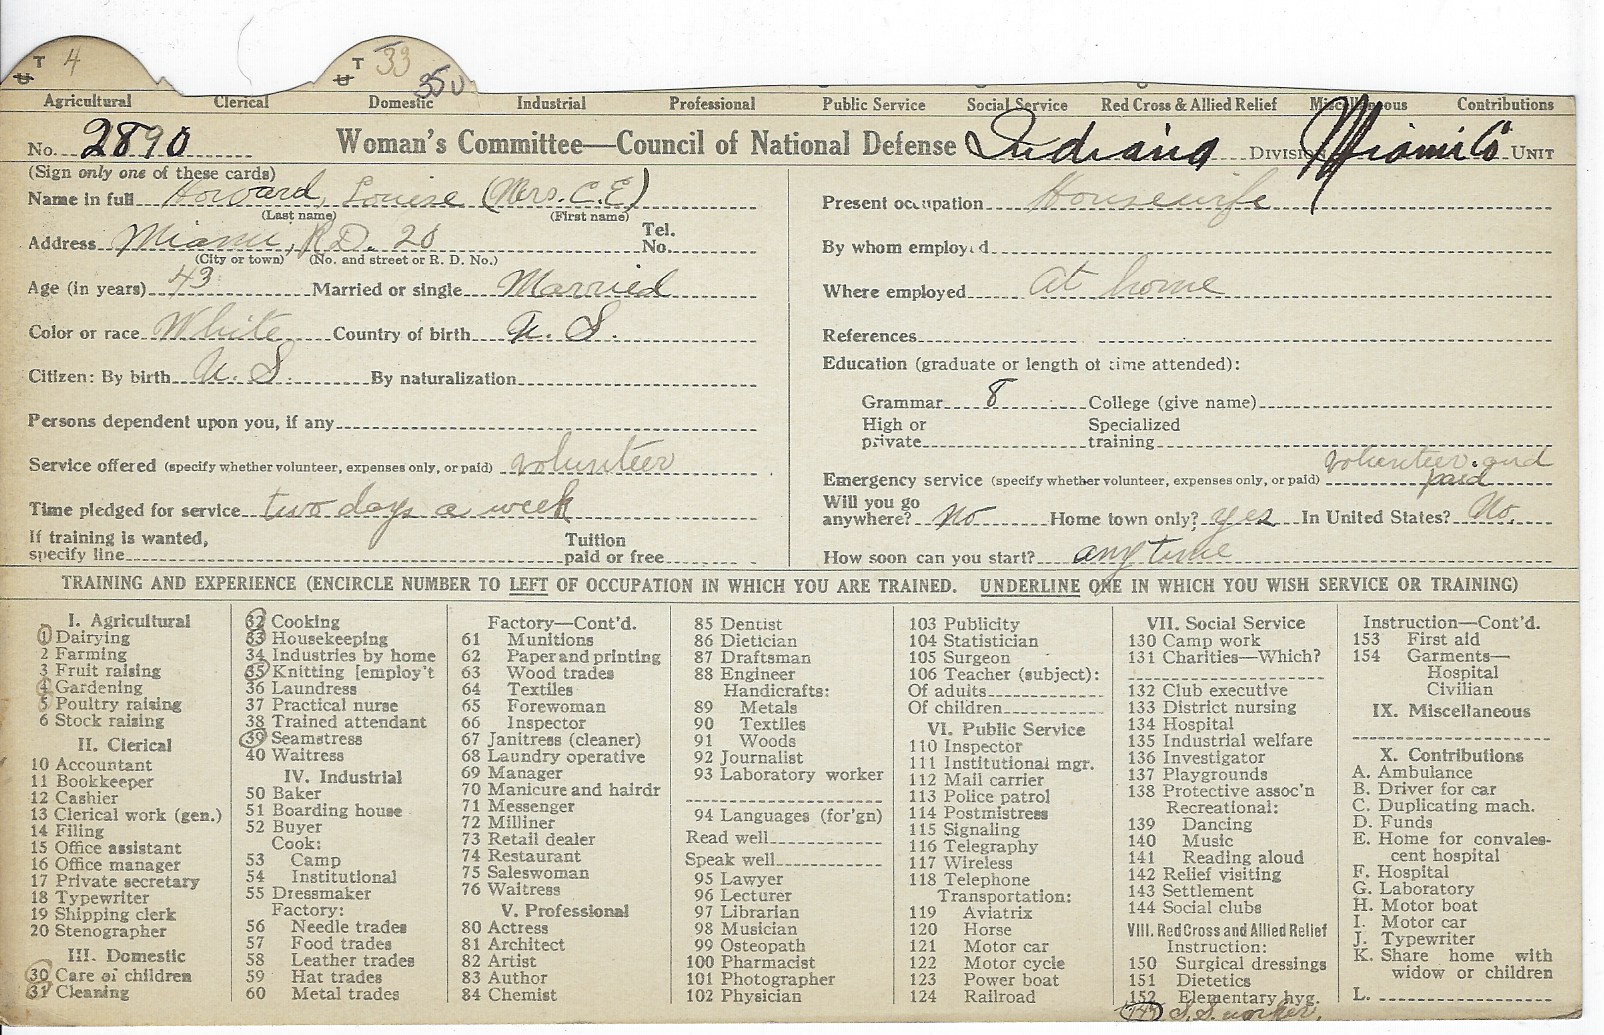 T 4 T 33
U U 35 U
Agricultural Clerical Domestic Industrial Professional Public Service Social Service Red Cross & Allied Relief Miscellaneous Contributions
No. 2890 Woman's Committee—Council of National Defense Indiana DIVISION Miami Co UNIT
(Sign only one of these cards)
Name in full Howard, Louise (Mrs. C.E)
(Last name) (First name)
Address Miami, R.D. 20 Tel. No.
(City or town) (No. and street or R. D. No.)
Age (in years) 43 Married or single Married
Color or race White Country of birth U. S.
Citizen: By birth U. S. By naturalization
Persons dependent upon you, if any
Service offered (specify whether volunteer, expenses only, or paid) volunteer
Time pledged for service two days a week
If training is wanted, Tuition
specify line paid or free
Present occupation Housewife
By whom employed
Where employed at home
References
Education (graduate or length of time attended):
Grammar 8 College (give name)
High or Specialized
private training
volunteer and
Emergency service (specify whether volunteer, expenses only, or paid) paid
Will you go
anywhere? No Home town only? yes In United States? No.
How soon can you start? any time
TRAINING AND EXPERIENCE (ENCIRCLE NUMBER TO LEFT OF OCCUPATION IN WHICH YOU ARE TRAINED. UNDERLINE ONE IN WHICH YOU WISH SERVICE OR TRAINING)
I. Agricultural
1 Dairying
2 Farming
3 Fruit raising
4 Gardening
5 Poultry raising
6 Stock raising
II. Clerical
10 Accountant
11 Bookkeeper
12 Cashier
13 Clerical work (gen.)
14 Filing
15 Office assistant
16 Office manager
17 Private secretary
18 Typewriter
19 Shipping clerk
20 Stenographer
III. Domestic
30 Care of children
31 Cleaning
32 Cooking
33 Housekeeping
34 Industries by home
35 Knitting [employ't
36 Laundress
37 Practical nurse
38 Trained attendant
39 Seamstress
40 Waitress
IV. Industrial
50 Baker
51 Boarding house
52 Buyer
Cook:
53 Camp
54 Institutional
55 Dressmaker
Factory:
56 Needle trades
57 Food trades
58 Leather trades
59 Hat trades
60 Metal trades
Factory—Cont'd.
61 Munitions
62 Paper and printing
63 Wood trades
64 Textiles
65 Forewoman
66 Inspector
67 Janitress (cleaner)
68 Laundry operative
69 Manager
70 Manicure and hairdr
71 Messenger
72 Milliner
73 Retail dealer
74 Restaurant
75 Saleswoman
76 Waitress
V. Professional
80 Actress
81 Architect
82 Artist
83 Author
84 Chemist
85 Dentist
86 Dietician
87 Draftsman
88 Engineer
Handicrafts:
89 Metals
90 Textiles
91 Woods
92 Journalist
93 Laboratory worker
94 Languages (for'gn)
Read well
Speak well
95 Lawyer
96 Lecturer
97 Librarian
98 Musician
99 Osteopath
100 Pharmacist
101 Photographer
102 Physician
103 Publicity
104 Statistician
105 Surgeon
106 Teacher (subject):
Of adults
Of children
VI. Public Service
110 Inspector
111 Institutional mgr.
112 Mail carrier
113 Police patrol
114 Postmistress
115 Signaling
116 Telegraphy
117 Wireless
118 Telephone
Transportation:
119 Aviatrix
120 Horse
121 Motor car
122 Motor cycle
123 Power boat
124 Railroad
VII. Social Service
130 Camp work
131 Charities—Which?
132 Club executive
133 District nursing
134 Hospital
135 Industrial welfare
136 Investigator
137 Playgrounds
138 Protective assoc'n
Recreational:
139 Dancing
140 Music
141 Reading aloud
142 Relief visiting
143 Settlement
144 Social clubs
VIII. Red Cross and Allied Relief
Instruction:
150 Surgical dressings
151 Dietetics
152 Elementary hyg.
S.S. worker.
Instruction—Cont'd.
153 First aid
154 Garments—
Hospital
Civilian
IX. Miscellaneous
X. Contributions
A. Ambulance
B. Driver for car
C. Duplicating mach.
D. Funds
E. Home for convales-
cent hospital
F. Hospital
G. Laboratory
H. Motor boat
I. Motor car
J. Typewriter
K. Share home with
widow or children
L.